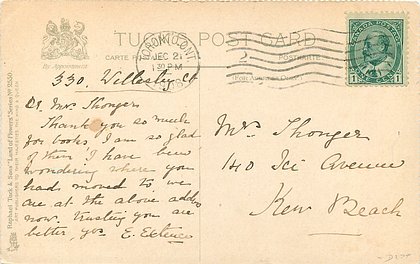 TUCK'S POST CARD
CARTE POSTALE
POSTKARTE
By Appointment
(For Address Only)
TORONTO, ONT.
DEC 21
1 30 PM
CANADA POSTAGE
1 1
Raphael Tuck & Sons' "Land of Flowers" Series No 2550.
330. Wellesley St
Dr Mrs Thonger
Thank you so much
for books, I am so glad
of them I have been
wondering where you
had moved to, we
are at the above address
now. trusting you are
better, yrs E.
Mrs Thonger
140 Avenue
Kew Beach